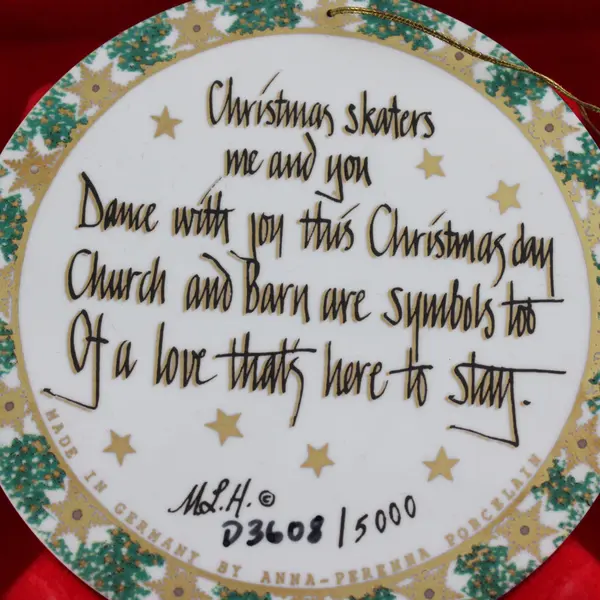 Christmas skaters
me and you
Dance with joy this Christmas day
Church and Barn are symbols too
Of a love that's here to stay.
M.L.H. ©
D3608/5000
MADE IN GERMANY BY ANNA-PERENNA PORCELAIN